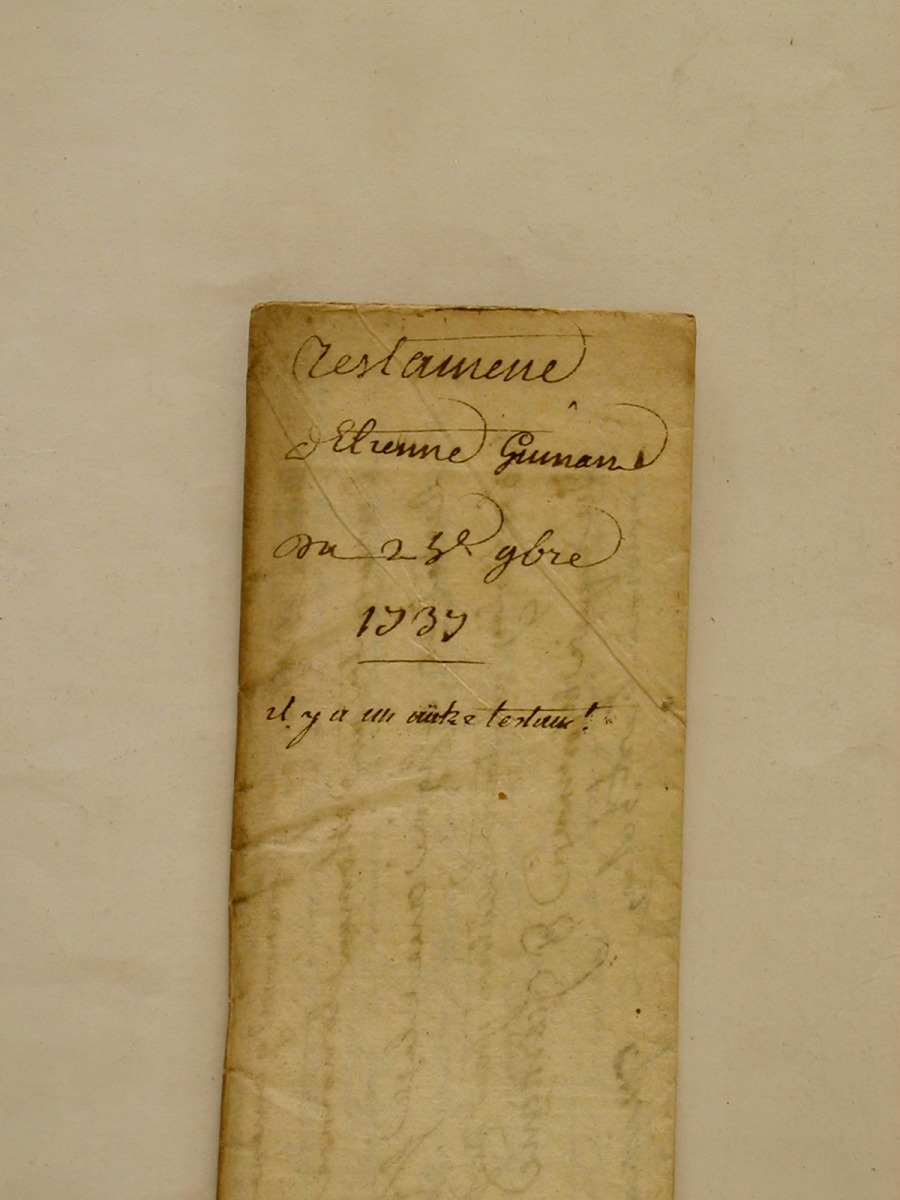 Testament
d'Etienne Guinand
du 23e 9bre
1737
il y a un autre testamt.